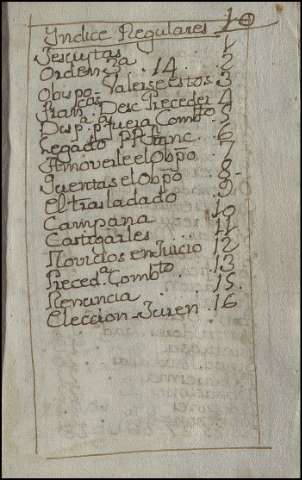 Yndice Regulares 1
Jesuytas 1
Orden 3ª . 14 2
Obispo Valerse estos 3
Franᶜᵒˢ Desc Preceder 4
Dispª pª fuera Combᵗᵒ 5
Legado PP Franc. 6
Amoverle el Obpō 7
Quentas el Obpō 8
El trasladado 9
Campana 10
Castigarles 11
Movidos en Juicio 12
Precedª Combᵗᵒ 13
Renuncia 15
Eleccion Juren 16